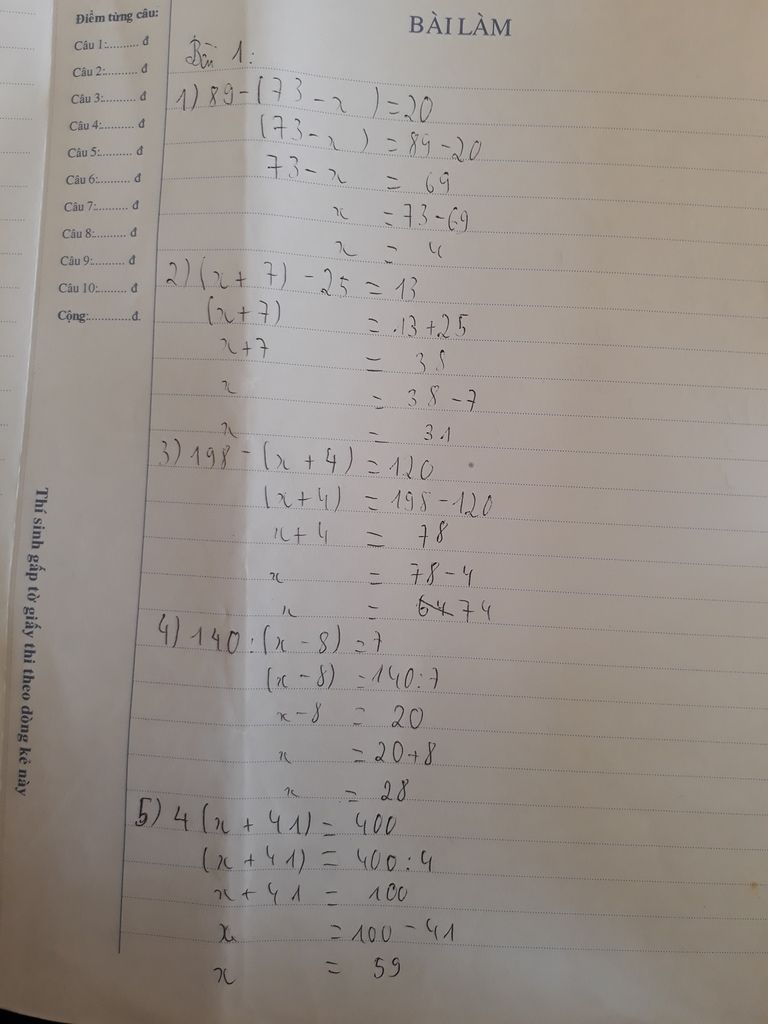 Điểm từng câu:
Câu 1:......... đ
Câu 2:......... đ
Câu 3:......... đ
Câu 4:......... đ
Câu 5:......... đ
Câu 6:......... đ
Câu 7:......... đ
Câu 8:......... đ
Câu 9:......... đ
Câu 10:........ đ
Cộng:............đ.
Thí sinh gấp tờ giấy thi theo dòng kẻ này
BÀI LÀM
Bài 1:
1) 89-(73-x)=20
(73-x)=89-20
73-x = 69
x =73-69
x = 4
2) (x+7)-25=13
(x+7) =13+25
x+7 = 38
x = 38-7
x = 31
3) 198-(x+4)=120
(x+4)=198-120
x+4 = 78
x = 78-4
x = 74
4) 140:(x-8)=7
(x-8)=140:7
x-8 = 20
x =20+8
x = 28
5) 4(x+41)=400
(x+41)=400:4
x+41 = 100
x =100-41
x = 59